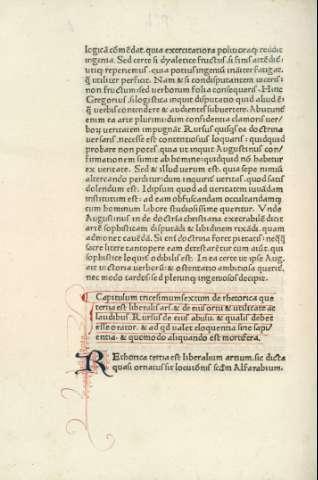 logicā cōmēdat. quia exercitatiora politioraq; reddit
ingenia. Sed certe si dyaletice fructus si finis attēdit̄
utiq; reperitur. quia potius ingenii inaniter fatigat.
q̄ utiliter perficit. Nam & si condisputantem uiceris:
non fructum sed uerborum folia consequeris. Hinc
Gregorius. si logistica inquit disputatio quid aliud ē:
q̄ uerbis contendere & audientes subuertere. Abutunt̄
enim ea arte plurimi dum confidentia clamoris uer/
boȝ ueritatem impugnāt. Rursus quisq̄s ea doctrina
uersat̄. necesse est contentiosius loquat̄: quidquid
probare non potest. quia ut inquit Augustinus con/
firmationem sumit ab homine: quidquid nō habetur
ex ueritate. Sed & illud uerum est. quia sepe nimis
altercando perditur: dum inquirit̄ ueritas. quod satis
dolendum est. Id ipsum quod ad ueritatem iuuādam
institutum est: ad eam obfuscandam occultandamq;
tum hominum labore studiosissime quentur. Vnde
Augustinus in de doctria christiana execrabilē dicit
artē sophisticam disputādi & libidinem rixādi. quam
admonet cauēdā. Si eni doctrina foret pietatis: neq̄
sacre litere tantopere eam detestarētur cum aiūt. qui
sophistice loquit̄ odibilis est. In ea certe ut ipse Aug.
ait uictoria uerborū: & ostentatio ambitiosa querit̄.
nec modo tardos: sed plerunq; ingeniosos decipit.
Capitulum tricesimumsextum de rhetorica que
tertia est liberalis ars. & de eius ortu & utilitate ac
laudibus Rursus de eius abusu. & qualis debet
esse orator. & ad qd ualet eloquentia sine sapi/
entia. & quomodo aliquando est mortifera.
REthorica tertia est liberalium artium. sic dicta
quasi ornatus sit locutionis scdm Alfarabium.